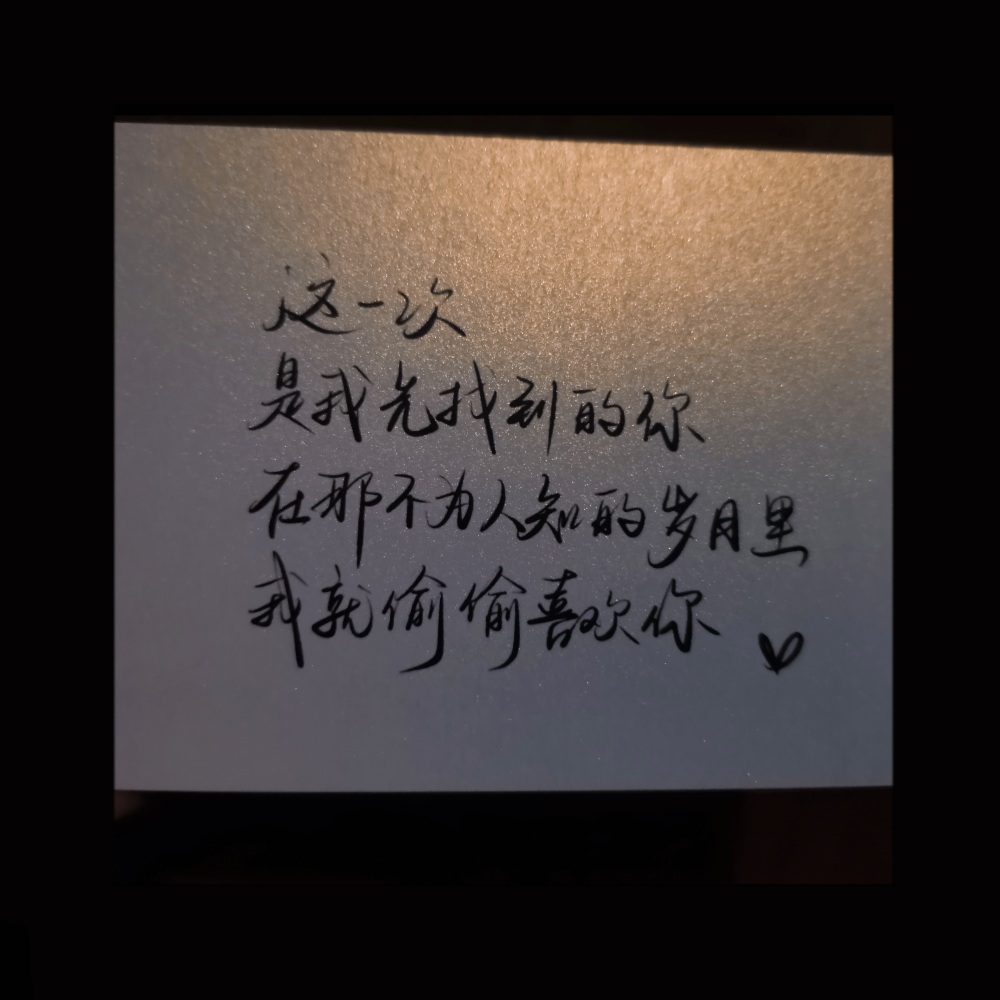 这一次
是我先找到的你
在那不为人知的岁月里
我就偷偷喜欢你